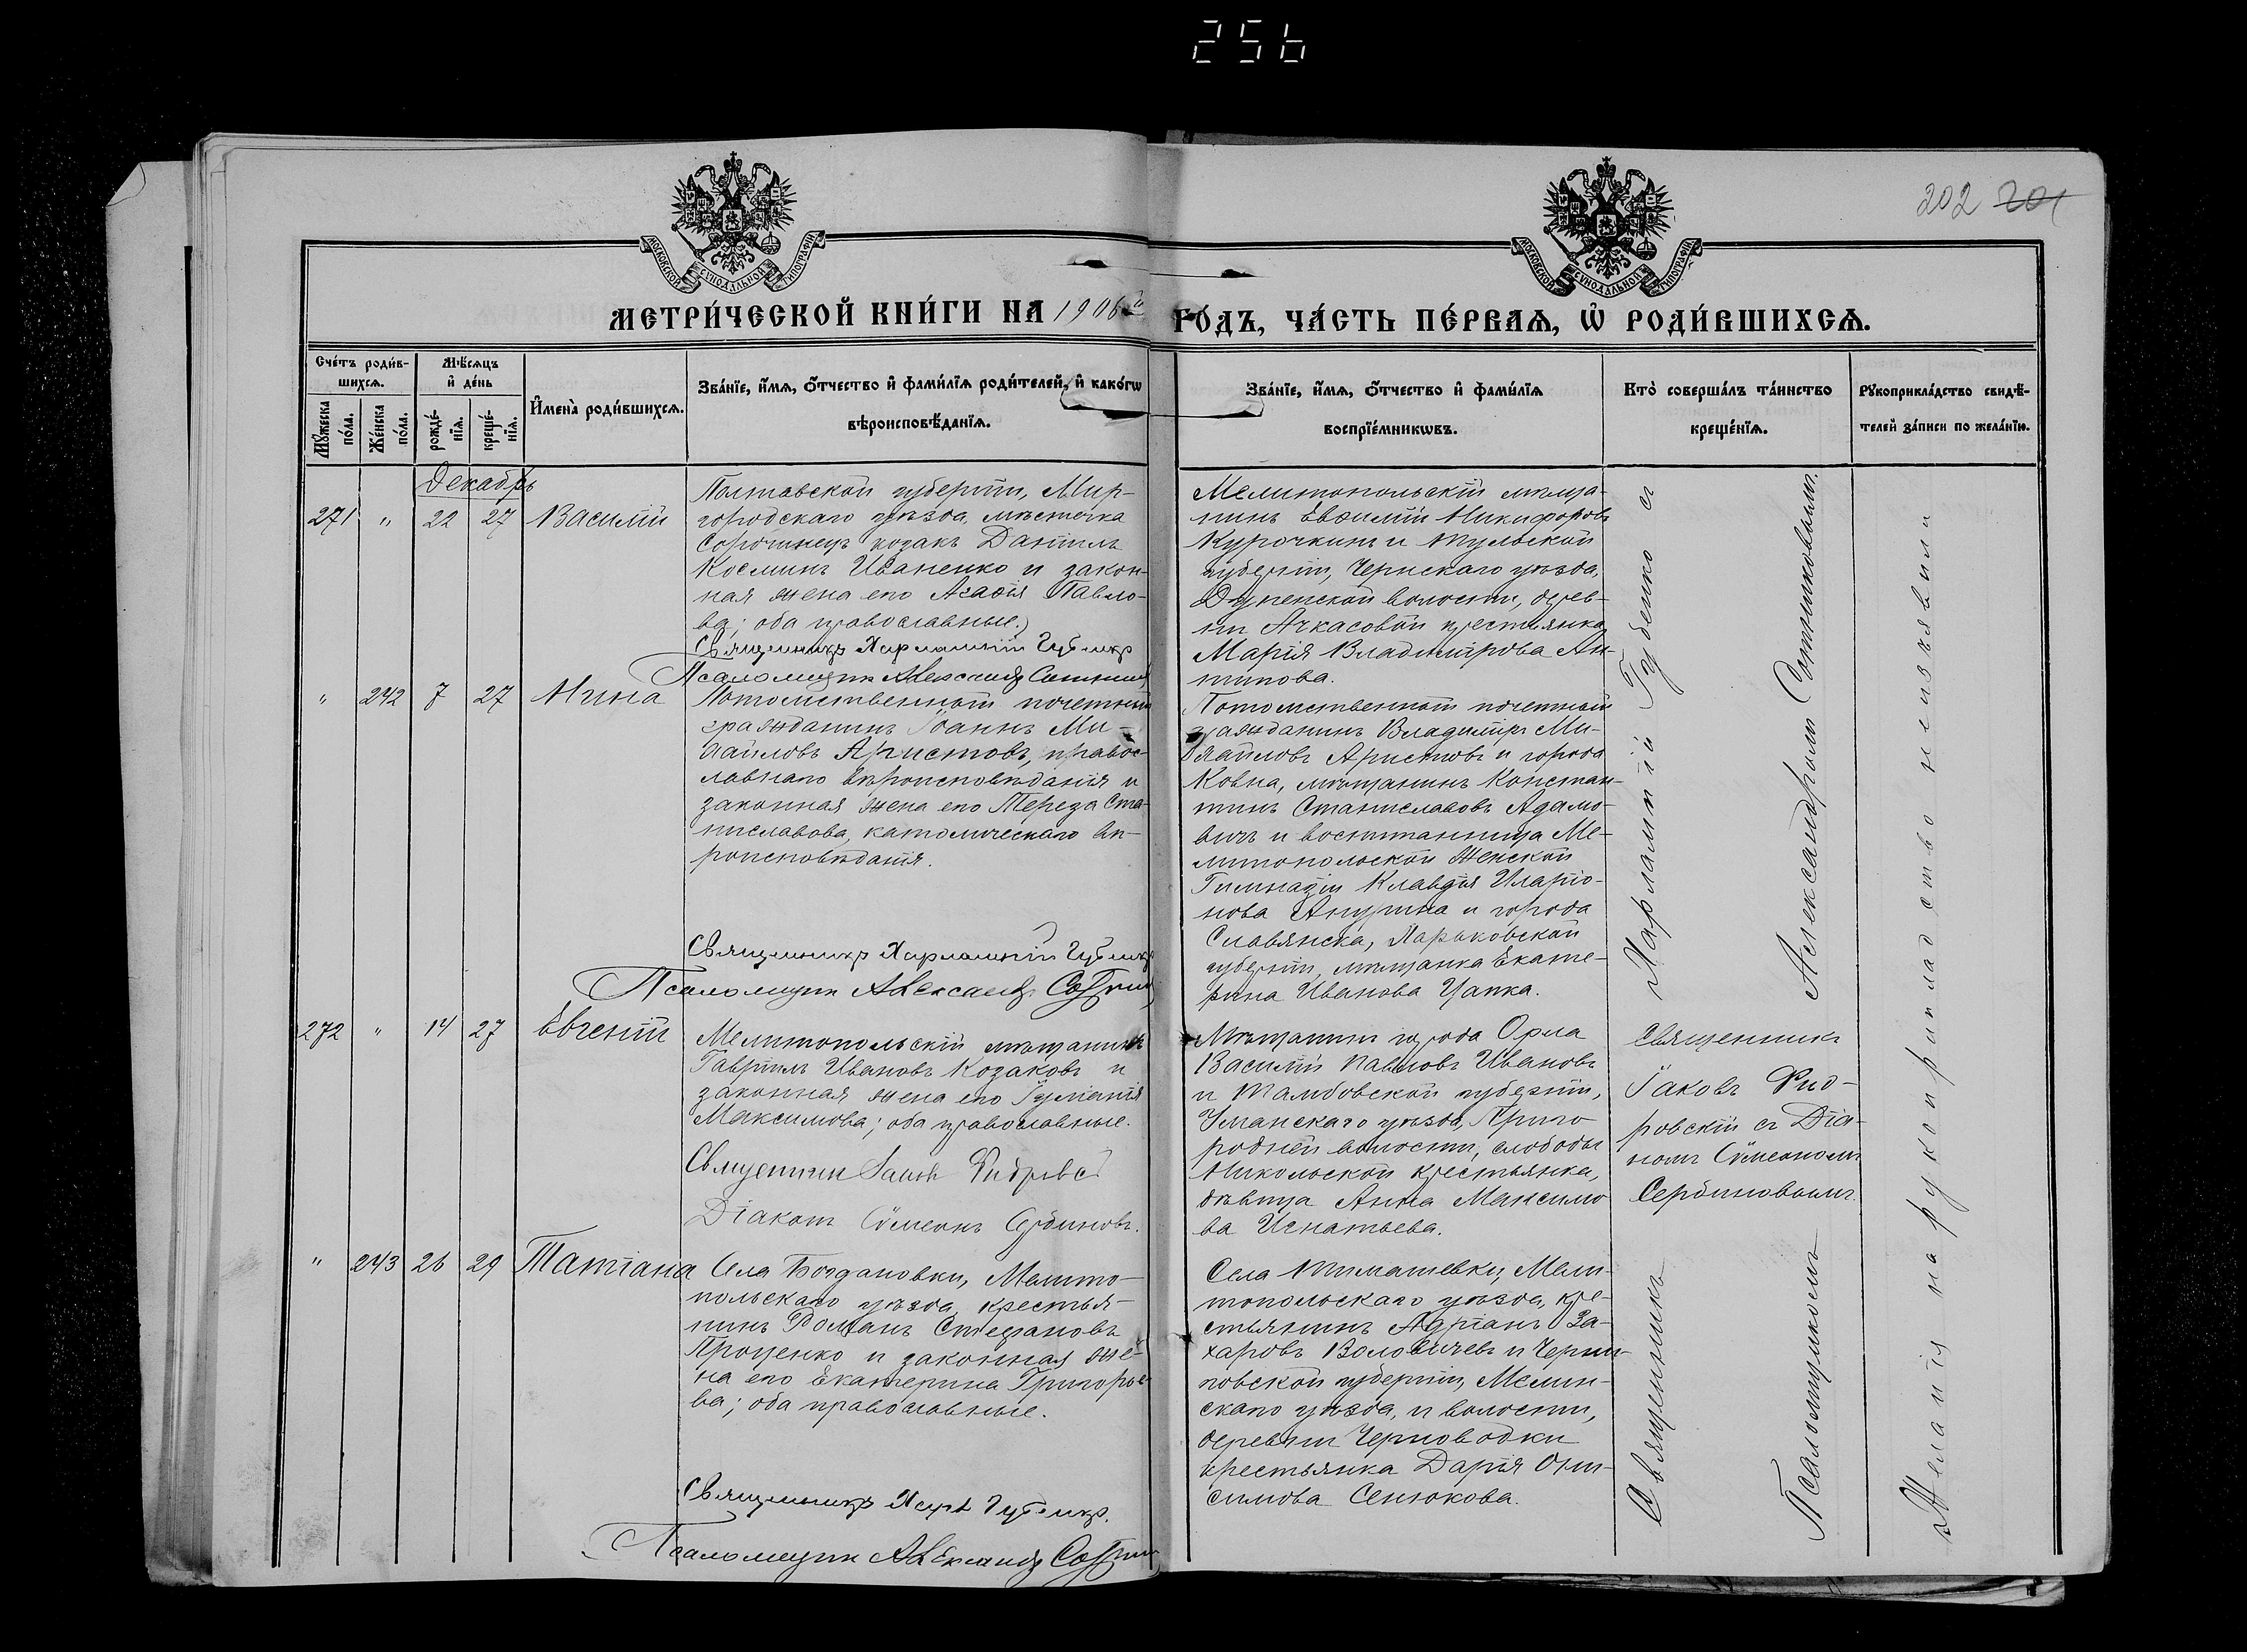 256
202 201
МОСКОВСКОЙ СѴНОДАЛЬНОЙ ТИПОГРАФІИ
МОСКОВСКОЙ СѴНОДАЛЬНОЙ ТИПОГРАФІИ
МЕТРИ́ЧЕСКОЙ КНИ́ГИ НА 1906й ГО́ДЪ, ЧА́СТЬ ПЕ́РВАѦ, Ѽ РОДИ́ВШИХСѦ.
Сче́тъ роди́в-
шихсѧ.
Мꙋ́жеска
по́ла.
Же́нска
по́ла.
Мѣ́сѧцъ
и҆ де́нь
рожде́-
нїѧ.
креще́-
нїѧ.
И҆мена̀ роди́вшихсѧ.
Зва́нїе, и҆́мѧ, ѻ҆́тчество и҆ фами́лїѧ роди́телей, и҆ како́гѡ
вѣроисповѣ́данїѧ.
Зва́нїе, и҆́мѧ, ѻ҆́тчество и҆ фами́лїѧ
воспрїе́мникѡвъ.
Кто̀ соверша́лъ та́инство
креще́нїѧ.
Рꙋкоприкла́дство свидѣ́-
телей за́писи по жела́нїю.
Декабрь
271 " 22 27 Василій
Полтавской губерніи, Мир-
городскаго уѣзда, мѣстечка
Сорочинецъ козакъ Даніилъ
Косминъ Иваненко и закон-
ная жена его Агаѳія Павло-
ва; оба православные.
Священникъ Харлампій Губенко
Псаломщикъ Александръ Сотников
Мелитопольскій мѣща-
нинъ Евѳимій Никифоровъ
Курочкинъ и Тульской
губерніи, Чернскаго уѣзда,
волости, дерев-
ни Ачкасовой крестьянка
Марія Владимірова Ан-
типова.
" 242 7 27 Нина
Потомственный почетный
гражданинъ Іоаннъ Ми-
хайловъ Аристовъ, правос-
лавнаго вѣроисповѣданія и
законная жена его Тереза Ста-
ниславова, католическаго вѣ-
роисповѣданія.
Священникъ Харлампій Губенко
Псаломщикъ Александръ Сотников
Потомственный почетный
гражданинъ Владиміръ Ми-
хайловъ Аристовъ и города
Ковна, мѣщанинъ Констан-
тинъ Станиславовъ Адамо-
вичъ и воспитанница Ме-
литопольской Женской
Гимназіи Клавдія Иларіо-
нова Анурина и города
Славянска, Харьковской
губерніи, мѣщанка Екате-
рина Иванова Цапка.
272 " 14 27 Евгеній
Мелитопольскій мѣщанинъ
Гавріилъ Ивановъ Козаковъ и
законная жена его Іуліанія
Максимова; оба православные.
Священникъ Іаковъ
Діаконъ Сѵмеонъ Сербиновъ.
Мѣщанинъ города Орла
Василій Павловъ Ивановъ
и Тамбовской губерніи,
Усманскаго уѣзда, Приго
родней волости, слободы
Никольской крестьянка,
дѣвица Анна Максимо
ва Игнатьева.
Священникъ
Іаковъ Фид-
ровскій съ Діа-
кономъ Сѵмеономъ
Сербиновымъ.
" 243 26 29 Татіана
Села Богдановки, Мелито-
польскаго уѣзда, крестья-
нинъ Романъ Стефановъ
Проценко и законная же-
на его Екатерина Григорье-
ва; оба православные.
Священникъ Харл Губенко.
Псаломщикъ Александръ Сотников
Села Тимашевки, Мели-
топольскаго уѣзда, кре-
стьянинъ Адріанъ За-
харовъ Воловичевъ и Черни-
говской губерніи, Мглин-
скаго уѣзда, и волости,
деревни Черноводки
крестьянка Дарія Они-
симова Сенюкова.
Священникъ Харлампій Губенко съ
Псаломщикомъ Александромъ Сотниковымъ.
Желанія на рукоприкладство неизъявили